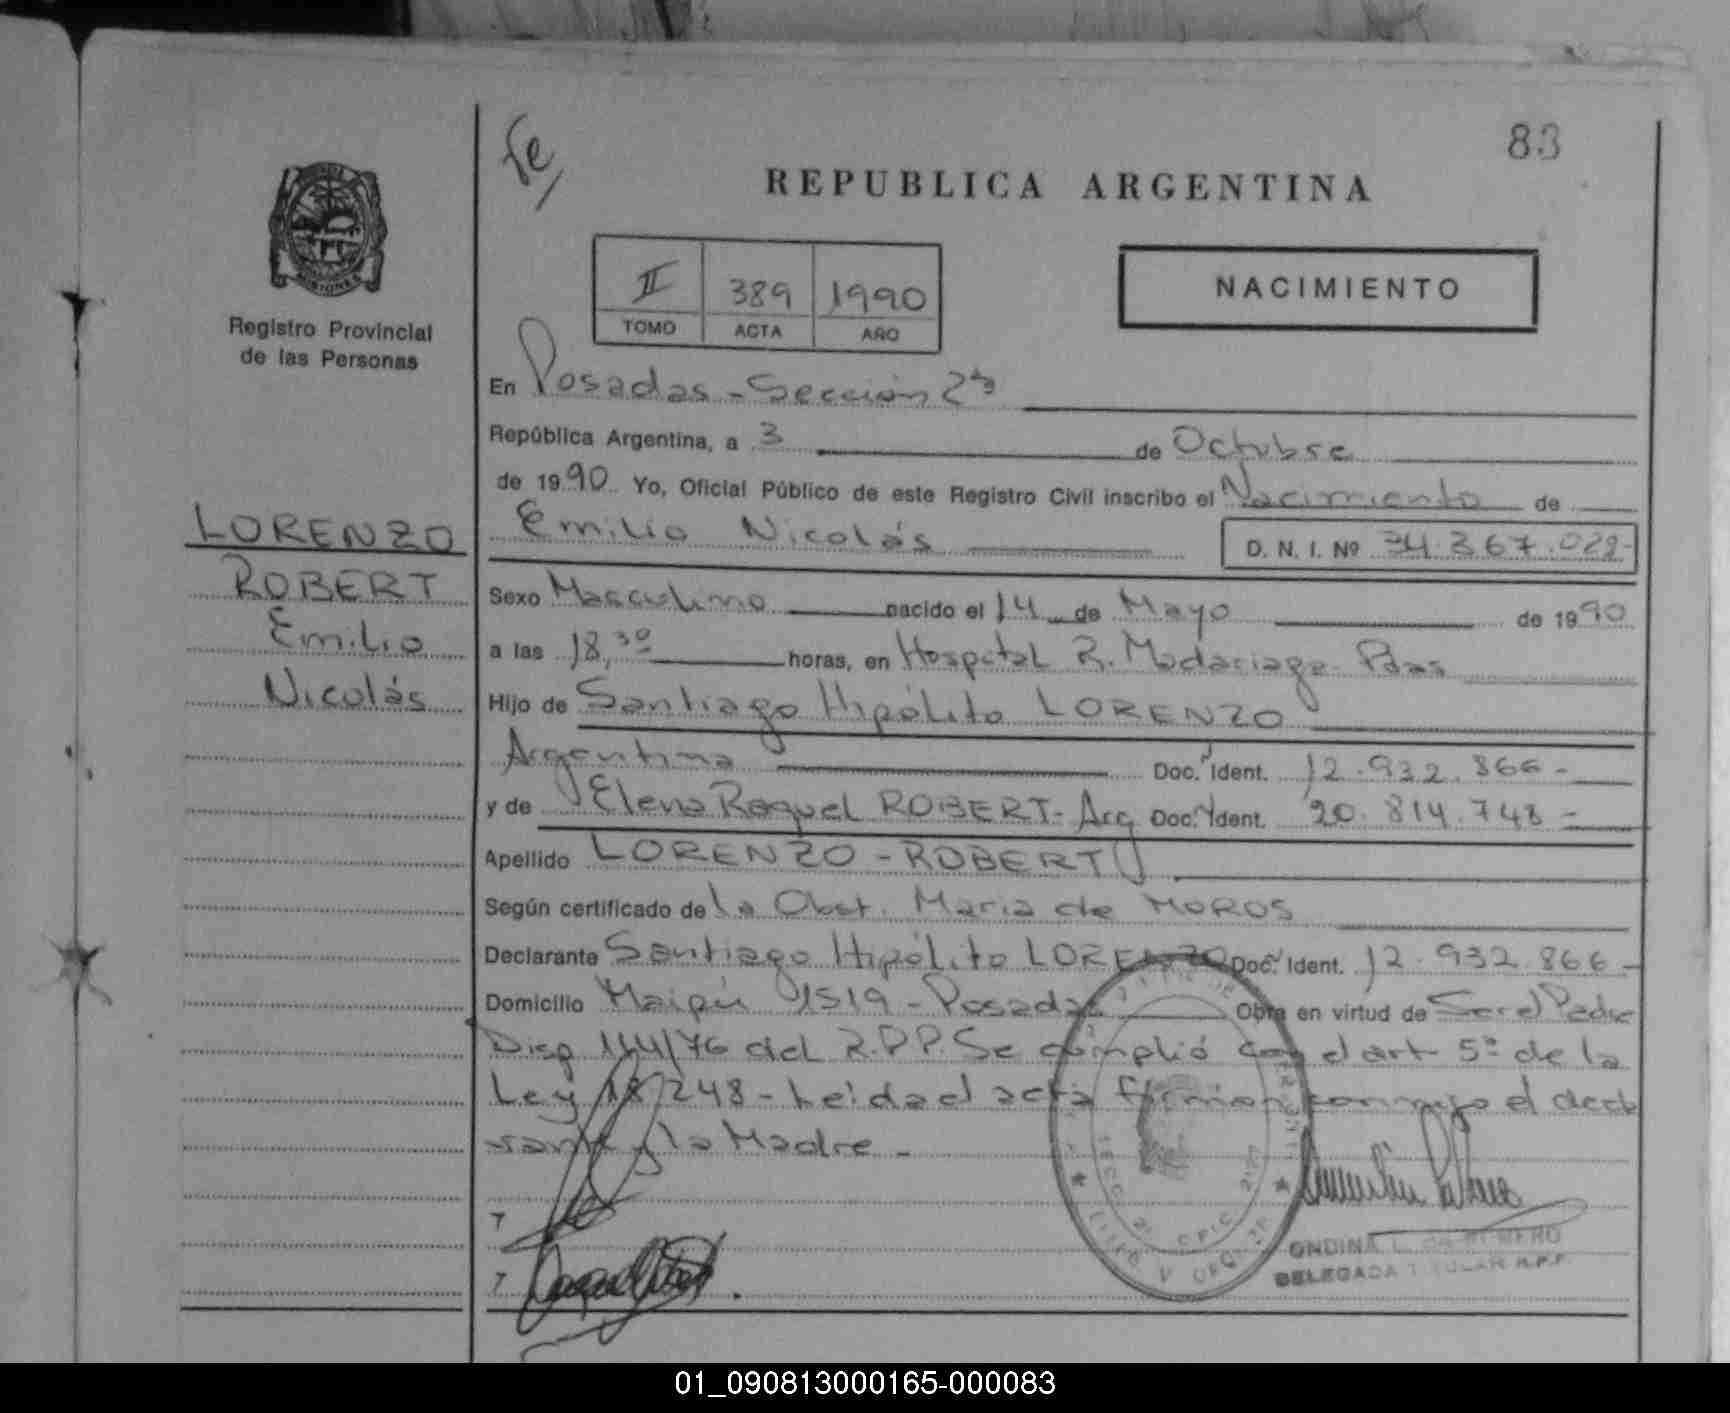 83
REPUBLICA ARGENTINA
MISIONES
Registro Provincial
de las Personas
II 389 1990
TOMO ACTA AÑO
NACIMIENTO
En Posadas - Sección 2ª
República Argentina, a 3 de Octubre
de 1990 Yo, Oficial Público de este Registro Civil inscribo el Nacimiento de
Emilio Nicolás D. N. I. Nº 34.367.029-
LORENZO
ROBERT
Emilio
Nicolás
Sexo Masculino nacido el 14 de Mayo de 1990
a las 18,30 horas, en Hospital R. Madariaga - Pdas
Hijo de Santiago Hipólito LORENZO
Argentina Doc. Ident. 12.932.866-
y de Elena Raquel ROBERT - Arg Doc. Ident. 20.814.748-
Apellido LORENZO - ROBERT
Según certificado de la Obst. Maria de MOROS
Declarante Santiago Hipólito LORENZO Doc. Ident. 12.932.866-
Domicilio Maipú 1519 - Posadas Obra en virtud de Ser el Padre
Disp 144/76 del R.P.P. Se cumplió con el art 5º de la
Ley 18248 - Leída el acta firman conmigo el decla
rante y la Madre -
ONDINA L. DE ROMERO
DELEGADA TITULAR R.P.P.
01_090813000165-000083